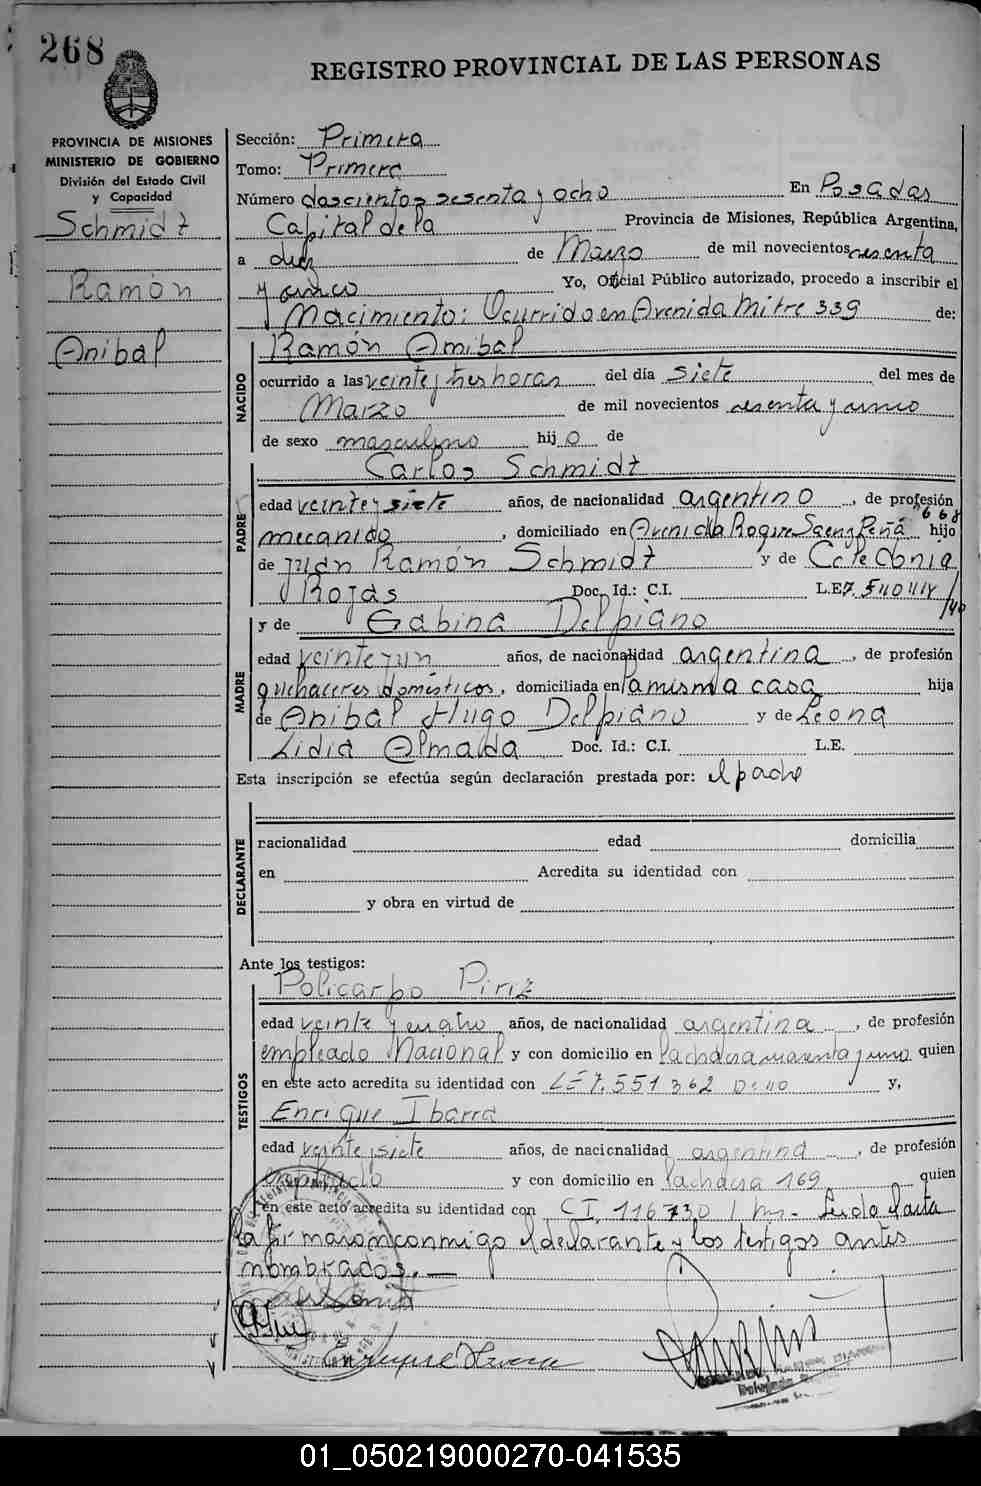 268
REGISTRO PROVINCIAL DE LAS PERSONAS
PROVINCIA DE MISIONES
MINISTERIO DE GOBIERNO
División del Estado Civil
y Capacidad
Schmidt
Ramón
Anibal
Sección: Primera
Tomo: Primera
Número doscientos sesenta y ocho En Posadas
Capital de la Provincia de Misiones, República Argentina,
a diez de Marzo de mil novecientos sesenta
y cinco Yo, Oficial Público autorizado, procedo a inscribir el
Nacimiento: Ocurrido en Avenida Mitre 339 de:
NACIDO
Ramón Anibal
ocurrido a las veinte y tres horas del día siete del mes de
Marzo de mil novecientos sesenta y cinco
de sexo masculino hijo de
PADRE
Carlos Schmidt
edad veinte y siete años, de nacionalidad argentino, de profesión
mecanico, domiciliado en Avenida Roque Saenz Peña 668 hijo
de Juan Ramón Schmidt y de Celedonia
Rojas Doc. Id.: C.I. L.E.
MADRE
y de Gabina Delpiano
edad veinte y un años, de nacionalidad argentina, de profesión
quehaceres domésticos, domiciliada en la misma casa hija
de Anibal Hugo Delpiano y de Leona
Lidia Almada Doc. Id.: C.I. L.E.
Esta inscripción se efectúa según declaración prestada por: el padre
DECLARANTE
nacionalidad edad domicilia
en Acredita su identidad con
y obra en virtud de
Ante los testigos:
TESTIGOS
Policarpo Piriz
edad veinte y cuatro años, de nacionalidad argentina, de profesión
empleado Nacional y con domicilio en la chacra cuarenta y uno quien
en este acto acredita su identidad con L E 7.551.362 y,
Enrique Ibarra
edad veinte y siete años, de nacionalidad argentina, de profesión
empleado y con domicilio en la chacra 169 quien
en este acto acredita su identidad con CI. 116730 Leida el acta
la firmaron conmigo el declarante y los testigos antes
nombrados.
01_050219000270-041535